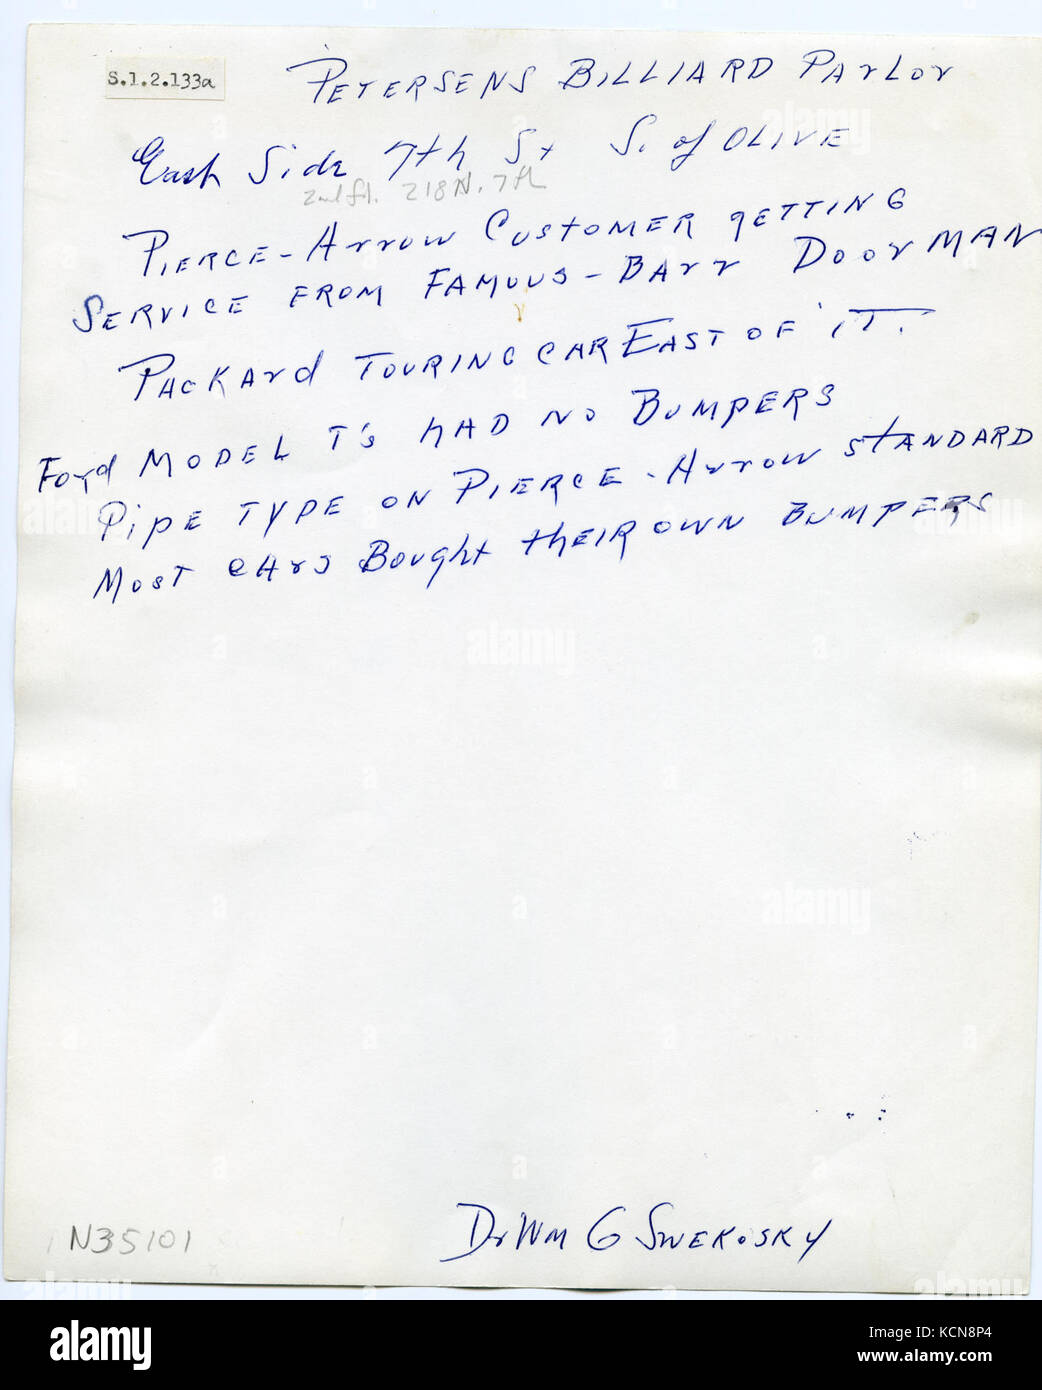 S.1.2.133a
PETERSENS BILLIARD PArLor
East Side 7th St S. of OLIVE
2nd fl. 218 N. 7th
PIERCE-Arrow CUSTOMER gETTING
SERVICE FROM FAMOUS-BArr DoorMAN
PACKArd TOURING CAR EAST OF IT.
Ford MODEL T's hAD NO BUMPERS
PipE TYPE ON PIERCE-Arrow STANDARD
MosT CArs Bought thEIR OWN BUMPERS
Dr WM G SWEKoSKY
N35101
alamy
Image ID: KCN8P4
www.alamy.com